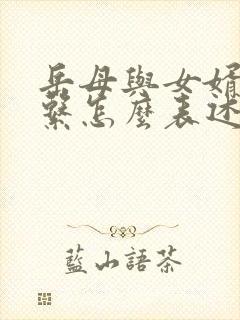 岳母與女婿
繫怎麼表述
藍山語茶